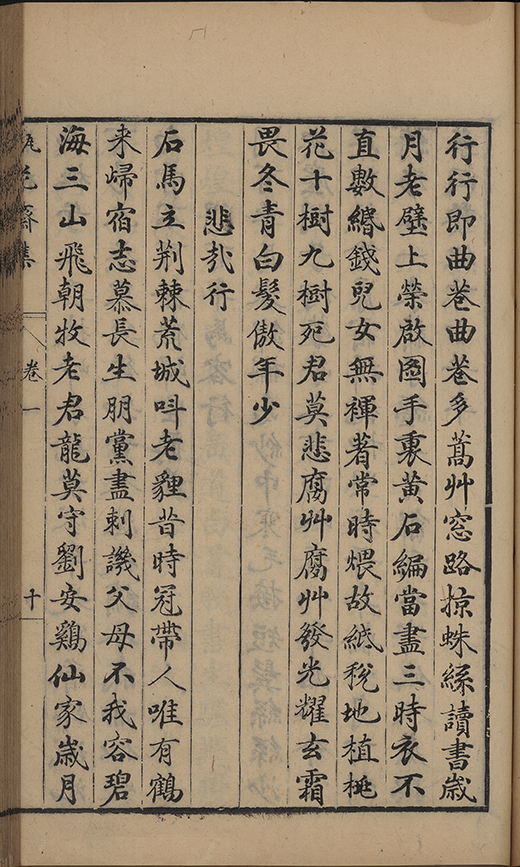 行行即曲巷曲巷多蒿艸窓路掠蛛絲讀書歳
月老壁上榮啟圖手裏黃石編當盡三時衣不
直數緡錢兒女無褌著常時煨故紙稅地植桃
花十樹九樹死君莫悲腐艸腐艸發光耀玄霜
畏冬青白髮傲年少
悲哉行
石馬立荆棘荒城呌老貍昔時冠帶人唯有鶴
来歸宿志慕長生朋黨盡刺譏父母不我容碧
海三山飛朝牧老君龍莫守劉安鷄仙家歳月
瓶花齋集 卷一 十